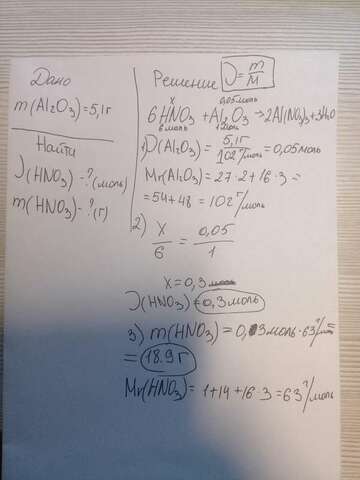 Дано
m(Al₂O₃)=5,1г
Найти
ν(HNO₃)-?(моль)
m(HNO₃)-?(г)
Решение ν=m/M
x 0,05моль
6HNO₃+Al₂O₃→2Al(NO₃)₃+3H₂O
6моль 1моль
1)ν(Al₂O₃)=5,1г/102г/моль=0,05моль
Mr(Al₂O₃)=27·2+16·3=
=54+48=102г/моль
2) x/6=0,05/1
x=0,3
ν(HNO₃)=0,3моль
3) m(HNO₃)=0,3моль·63г/моль=
=18.9г
Mr(HNO₃)=1+14+16·3=63г/моль